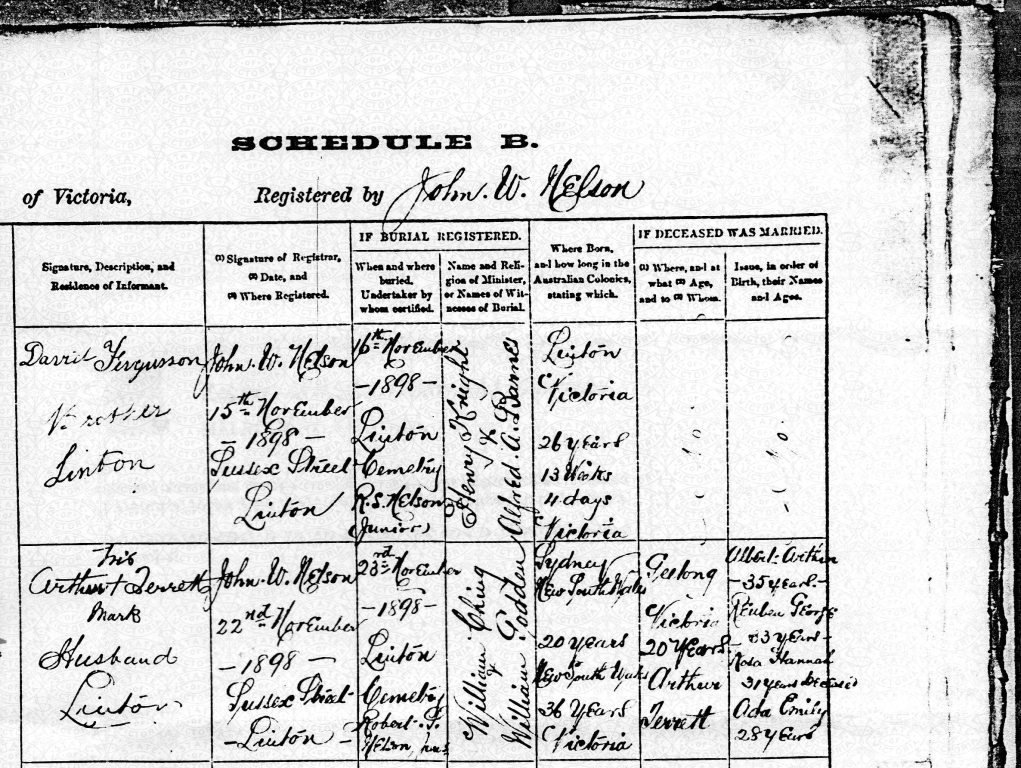 SCHEDULE B.
of Victoria, Registered by John. W. Nelson
Signature, Description, and
Residence of Informant.
(1) Signature of Registrar,
(2) Date, and
(3) Where Registered.
IF BURIAL REGISTERED.
When and where
buried.
Undertaker by
whom certified.
Name and Reli-
gion of Minister,
or Names of Wit-
nesses of Burial.
Where Born,
and how long in the
Australian Colonies,
stating which.
IF DECEASED WAS MARRIED.
(1) Where, and at
what (2) Age,
and to (3) Whom.
Issue, in order of
Birth, their Names
and Ages.
David Fergusson
Brother
Linton
John. W. Nelson
15th November
- 1898 -
Sussex Street
Linton
16th November
- 1898 -
Linton
Cemetry
R. S. Nelson
(Junior)
Henry Knight
&
Alfred. A. Barnes
Linton
Victoria
26 years
13 Weeks
4 days
Victoria
his
Arthur + Terrett
Mark
Husband
Linton
John. W. Nelson
22nd November
- 1898 -
Sussex Street
- Linton -
23rd November
- 1898 -
Linton
Cemetry
Robert. S.
Nelson, Junr
William Ching
&
William Godden
Sydney
New South Wales
20 years
New South Wales
36 Years
Victoria
Geelong
Victoria
20 Years
Arthur
Terrett
Albert. Arthur
- 35 years. -
Reuben George
- 33 years -
Rosa Hannah
31 years Deceased
Ada Emily
28 Years